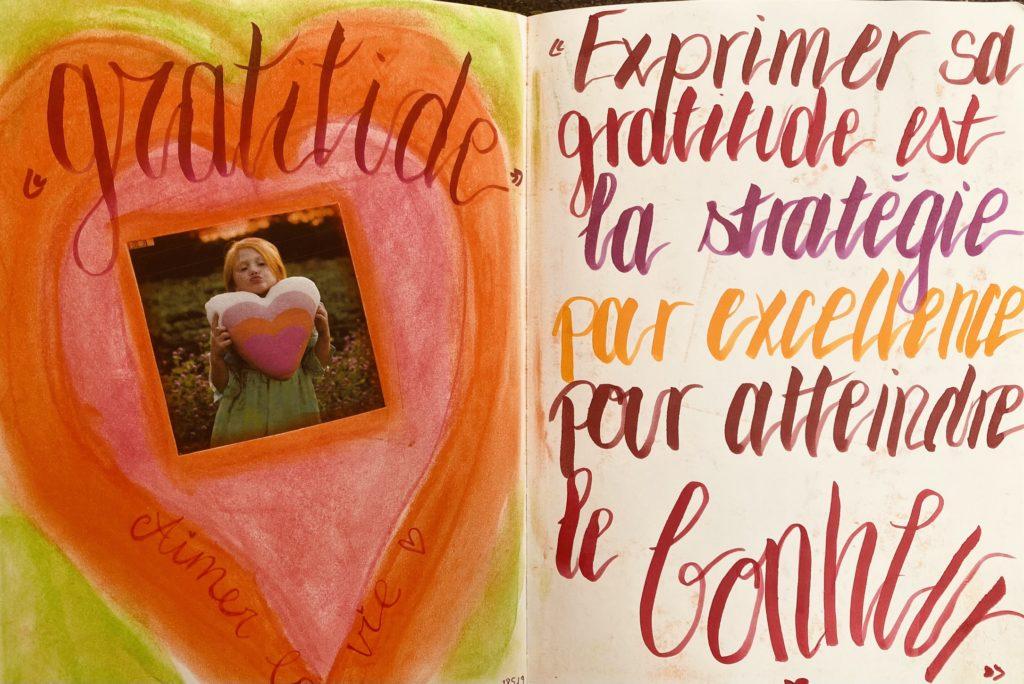 « gratitude »
Aimer
la
vie
« Exprimer sa
gratitude est
la stratégie
par excellence
pour atteindre
le bonheur
»